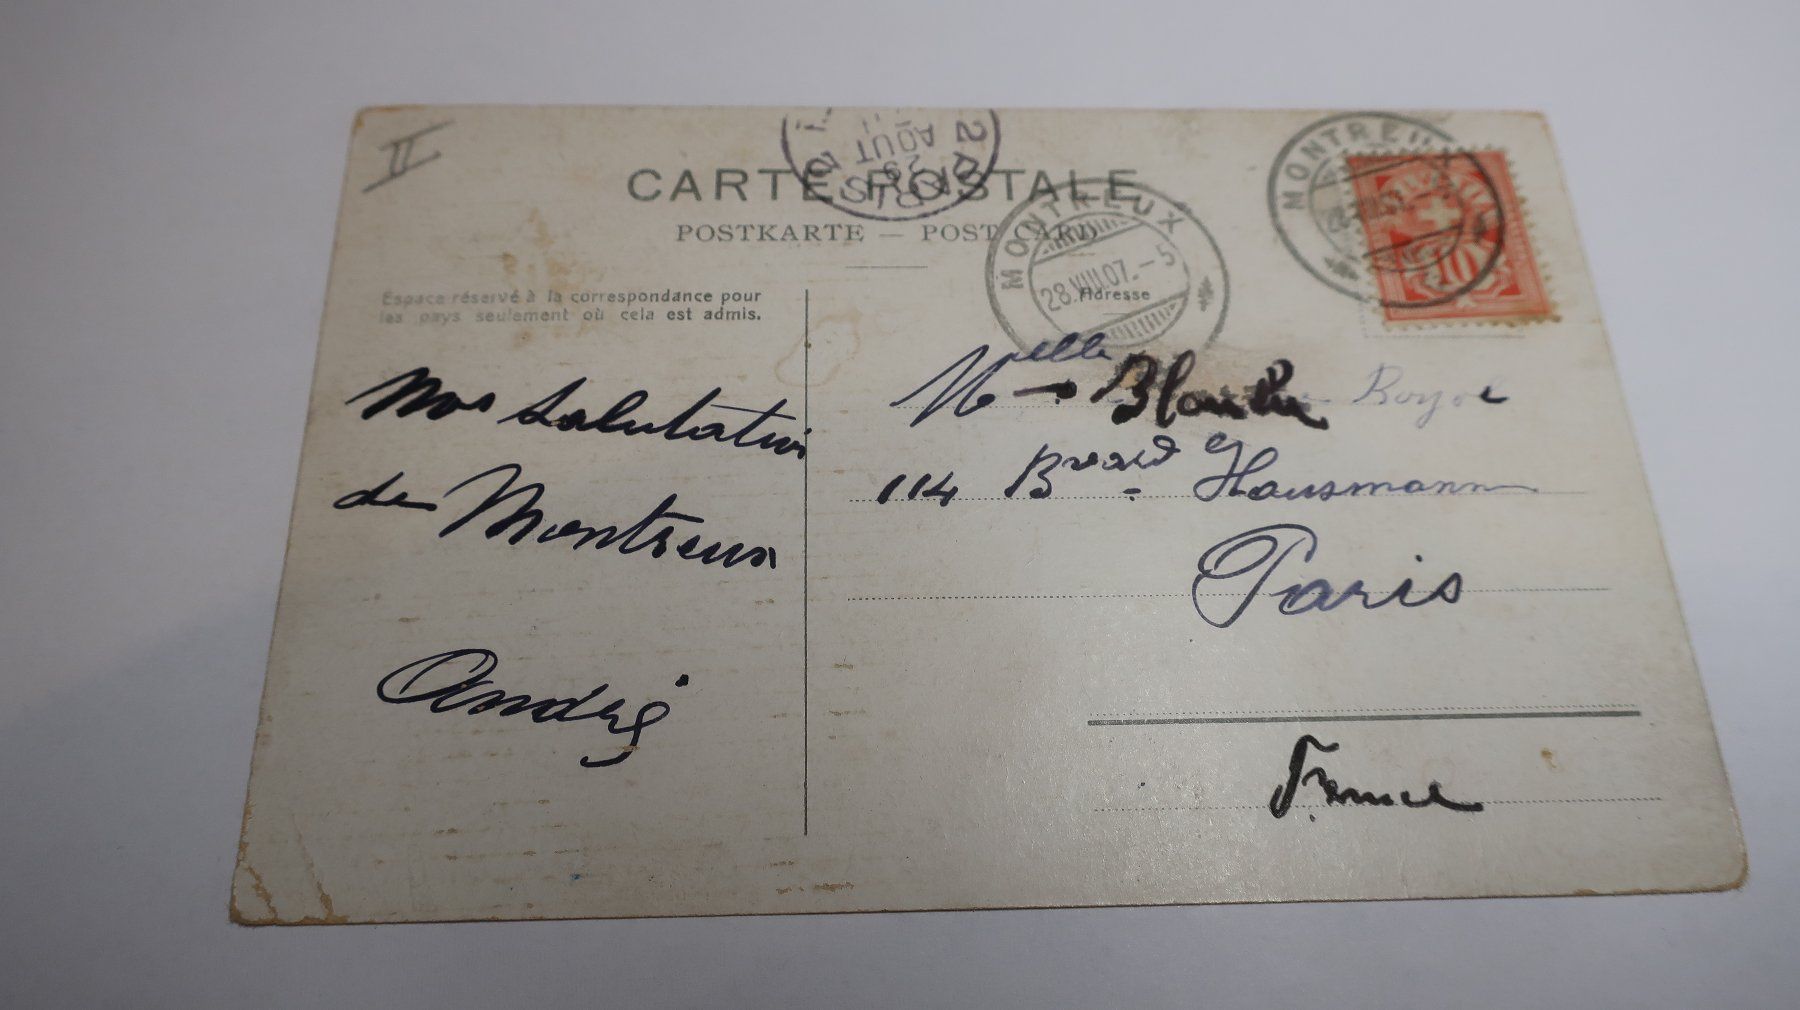 II
CARTE POSTALE
POSTKARTE — POST CARD
PARIS
29
AOUT
MONTREUX
28.VIII.07.-5
MONTREUX
10
Espace réservé à la correspondance pour
les pays seulement où cela est admis.
Adresse
Nos salutation
de Montreux
André
Melle
114 Bvard Hausmann
Paris
France